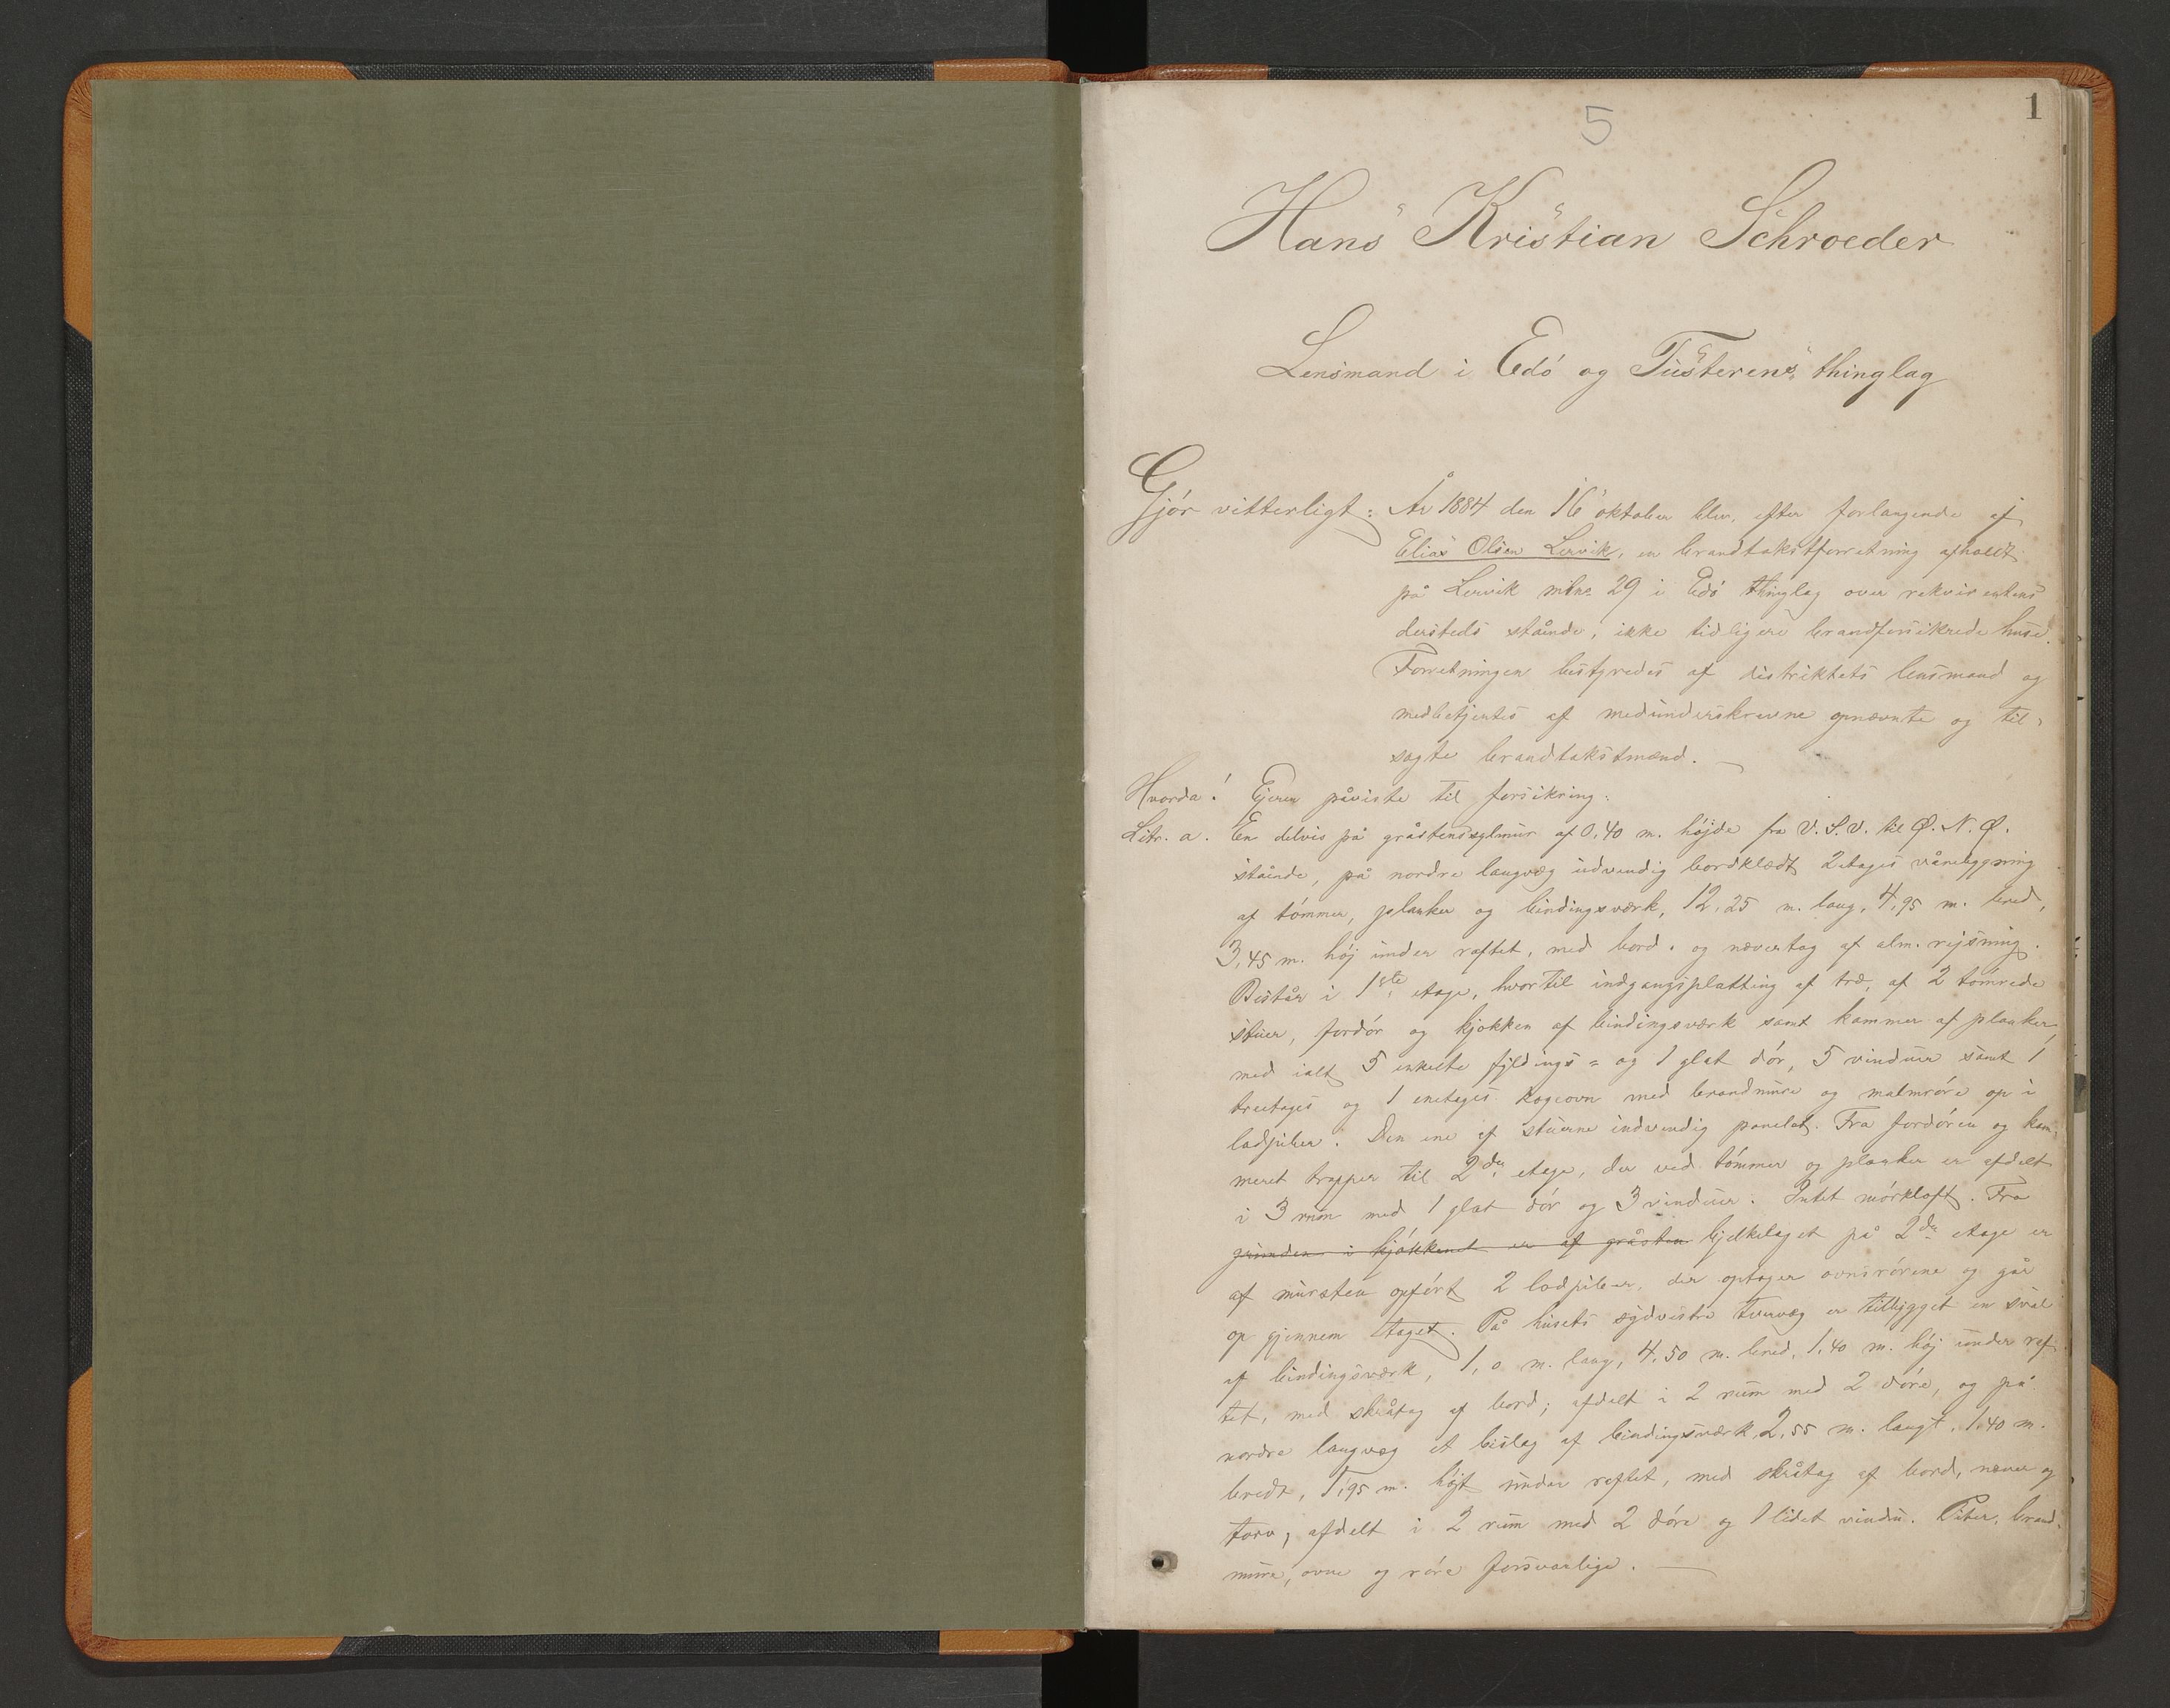 1
5
Hans Kristian Schroeder
Lensmand i Edö og Tusterens thinglag
Gjör vitterligt: År 1884 den 16 oktober blev, efter forlangende af
Elias Olsen Lervik, en brandtakstforretning afholdt
på Lervik mtno 29 i Edö thinglag over rekvirentens
dersteds stående, ikke tidligere brandforsikrede huse.
Forretningen bestyredes af distriktets lensmand og
medbetjentes af medunderskrevne opnævnte og til-
sagte brandtakstmænd. —
Hvorda! Ejeren påviste til forsikring:
Litr. a. En delvis på gråstensylmur af 0,40 m. højde fra V.S.V. til Ø.N.Ø.
stående, på nordre langvæg udvendig bordklædt 2etages vånebygning
af tömmer, planker og bindingsværk, 12,25 m. lang, 4,95 m. bred,
3,45 m. höj under raftet, med bord- og nævertag af alm. rejsning.
Består i 1ste etage, hvortil indgangsplatting af træ, af 2 tömrede
stuer, fordör og kjökken af bindingsværk samt kammer af planker,
med ialt 5 enkelte fyldings- og 1 glat dör, 5 vinduer samt 1
treetages og 1 enetages kogeovn med brandmure og malmröre op i
ladpiber. Den ene af stuerne indvendig panelet. Fra fordören og kam-
meret trapper til 2den etage, der ved tömmer og planker er afdelt
i 3 rum med 1 glat dör og 3 vinduer. Intet mörkloft. Fra
grunden i kjökkenet er af gråsten bjelkelaget på 2den etage er
af mursten opfört 2 ladpiber, der optager ovnsrörene og går
op gjennem taget. På husets sydvestre tvervæg er tilbygget en sval
af bindingsværk, 1,0 m. lang, 4,50 m. bred, 1,40 m. höj under raf-
tet, med skråtag af bord; afdelt i 2 rum med 2 döre, og på
nordre langvæg et bislag af bindingsværk, 2,55 m. langt, 1,40 m.
bredt, 1,95 m. höjt under raftet, med skråtag af bord, never og
torv; afdelt i 2 rum med 2 döre og 1 lidet vindu. Piber, brand-
mure, ovne og röre forsvarlige. —